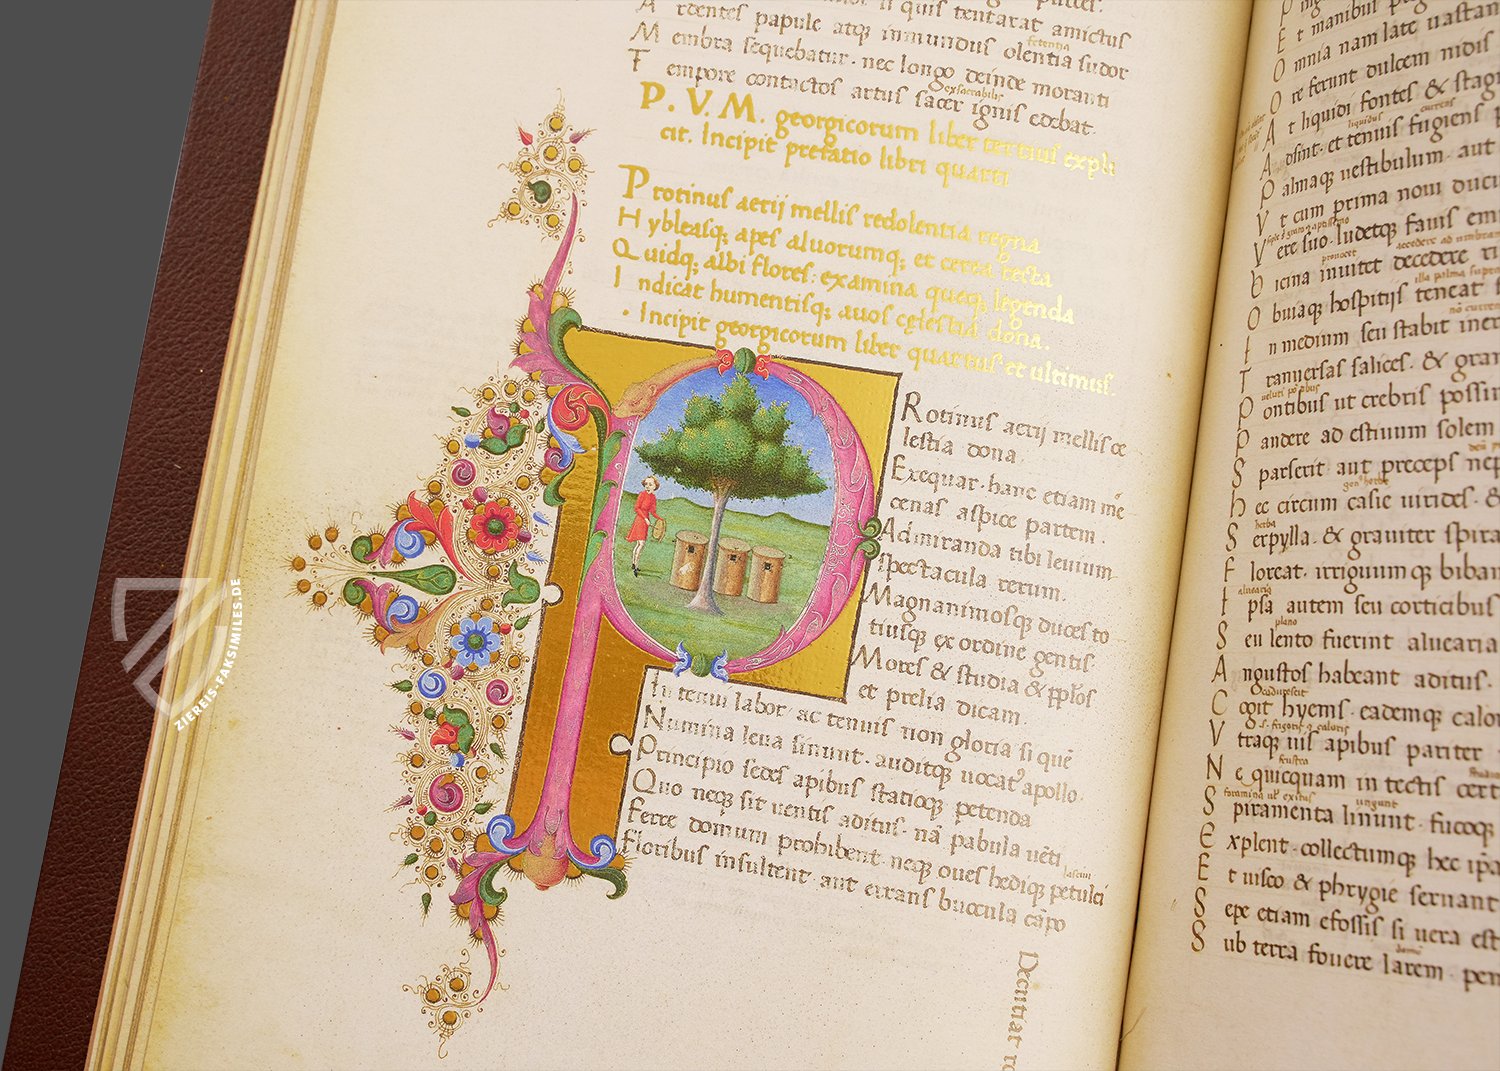 si quis tentarat amictus
Ardentes papule atq; inmundus olentia sudor
fetentia
Membra sequebatur. nec longo deinde moranti
Tempore contactos artus sacer ignis edebat.
exsecrabilis
P. V. M. georgicorum liber tertius expli
cit. Incipit prefatio libri quarti
Protinus aerij mellis redolentia regna
Hybleasq; apes aluorumq; et cerea tecta
Quidq; albi flores: examina queq; legenda
Indicat humentisq; auos celestia dona.
Incipit georgicorum liber quartus et ultimus.
Rotinus aerij mellis ce
lestia dona.
Exequar. hanc etiam me
cenas aspice partem.
Admiranda tibi leuium
spectacula rerum.
Magnanimosq; duces to
tiusq; ex ordine gentis.
Mores & studia & pplos
et prelia dicam.
In tenui labor. ac tenuis non gloria si quē
Numina leua sinunt. auditq; uocat' apollo.
Principio sedes apibus statioq; petenda
Quo neq; sit uentis aditus. nā pabula uēti
Ferre domum prohibent. neq; oues hediq; petulci
lasciui
Floribus insultent. aut errans buccula cāpo
Decutiat ro
Et manibus
Omnia nam late uastan
Ore ferunt dulcem nidis
At liquidi fontes & stag
currens
liquidus
Adsint. et tenuis fugiens p
Palmaq; uestibulum. aut
Vt cum prima noui duc
Vere suo. ludetq; fauis em
Vicina inuitet decedere ri
Obuiaq; hospitijs teneat
In medium seu stabit iner
Tranuersas salices. & gran
Pontibus ut crebris possin
Pandere ad estiuum solem
Sparserit. aut preceps nep
Hec circum casie uirides. &
herba
Serpylla. & grauiter spira
Floreat. irriguum q; biban
aluearia
Ipsa autem seu corticibus
Seu lento fuerint aluearia
Angustos habeant aditus.
Cogit hyems. eademq; calor
Vtraq; uis apibus pariter
frustra
Ne quicquam in tectis cert
Spiramenta linunt. fucoq;
Explent. collectumq; hec ipsa
Et uisco & phrygie seruant
Sepe etiam efossis si uera est
Sub terra fouere larem. pen
ZIEREIS-FAKSIMILES.DE